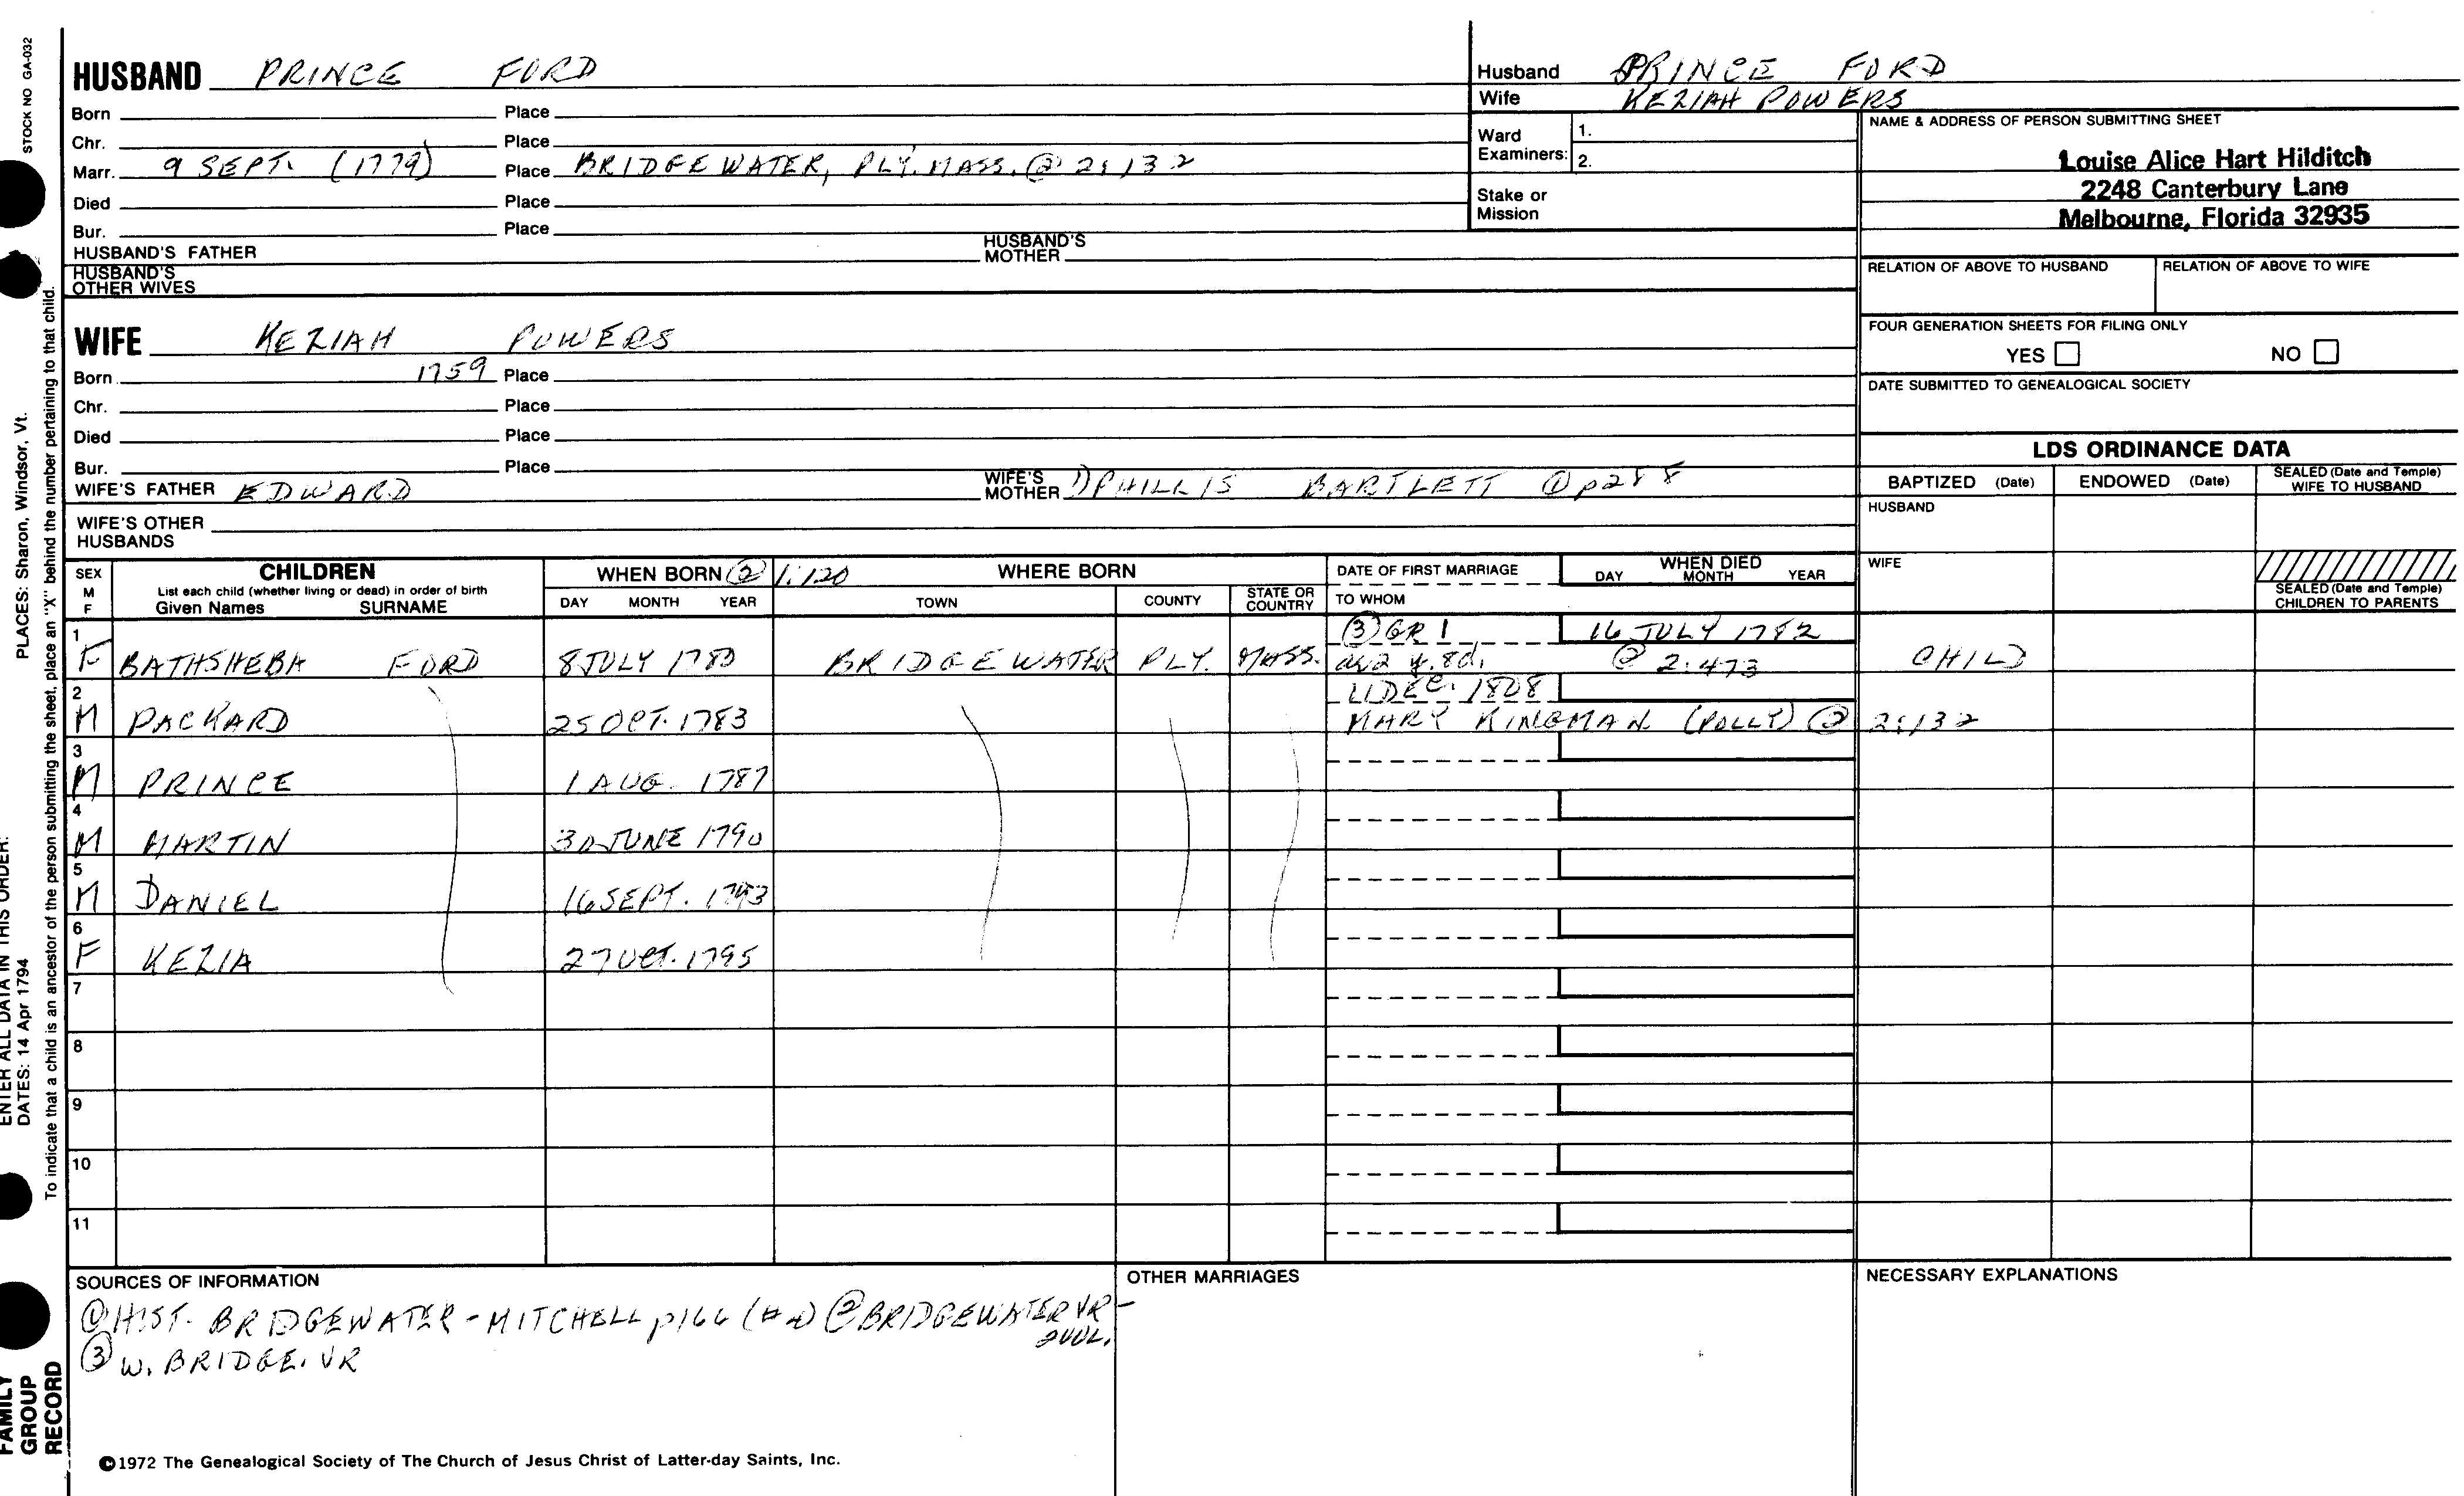 STOCK NO GA-032
HUSBAND PRINCE FORD
Born Place
Chr. Place
Marr. 9 SEPT. (1779) Place BRIDGEWATER, PLY. MASS. ② 2:132
Died Place
Bur. Place
HUSBAND'S FATHER HUSBAND'S MOTHER
HUSBAND'S OTHER WIVES
Husband PRINCE FORD
Wife KEZIAH POWERS
Ward Examiners: 1.
2.
Stake or Mission
NAME & ADDRESS OF PERSON SUBMITTING SHEET
Louise Alice Hart Hilditch
2248 Canterbury Lane
Melbourne, Florida 32935
RELATION OF ABOVE TO HUSBAND RELATION OF ABOVE TO WIFE
FOUR GENERATION SHEETS FOR FILING ONLY
YES NO
DATE SUBMITTED TO GENEALOGICAL SOCIETY
WIFE KEZIAH POWERS
Born 1759 Place
Chr. Place
Died Place
Bur. Place
WIFE'S FATHER EDWARD WIFE'S MOTHER PHILLIS BARTLETT ① p288
WIFE'S OTHER HUSBANDS
LDS ORDINANCE DATA
BAPTIZED (Date) ENDOWED (Date) SEALED (Date and Temple) WIFE TO HUSBAND
HUSBAND
WIFE
SEALED (Date and Temple) CHILDREN TO PARENTS
SEX M F
CHILDREN
List each child (whether living or dead) in order of birth
Given Names SURNAME
WHEN BORN ② 1:120
DAY MONTH YEAR
WHERE BORN
TOWN COUNTY STATE OR COUNTRY
DATE OF FIRST MARRIAGE
TO WHOM
WHEN DIED
DAY MONTH YEAR
1 ③ GR 1 16 JULY 1782
F BATHSHEBA FORD 8 JULY 1780 BRIDGEWATER PLY. MASS. ae 2 y. 8d. @ 2:473 CHILD
2 11 DEC. 1808
M PACKARD 25 OCT. 1783 MARY KINGMAN (POLLY) ② 2:132
3
M PRINCE 1 AUG. 1787
4
M MARTIN 30 JUNE 1790
5
M DANIEL 16 SEPT. 1793
6
F KEZIA 27 OCT. 1795
7
8
9
10
11
SOURCES OF INFORMATION
① HIST. BRIDGEWATER - MITCHELL p166 (#4) ② BRIDGEWATER VR -
2 VOL.
③ W. BRIDGE. VR
OTHER MARRIAGES
NECESSARY EXPLANATIONS
©1972 The Genealogical Society of The Church of Jesus Christ of Latter-day Saints, Inc.
ENTER ALL DATA IN THIS ORDER:
DATES: 14 Apr 1794 PLACES: Sharon, Windsor, Vt.
To indicate that a child is an ancestor of the person submitting the sheet, place an "X" behind the number pertaining to that child.
FAMILY
GROUP
RECORD